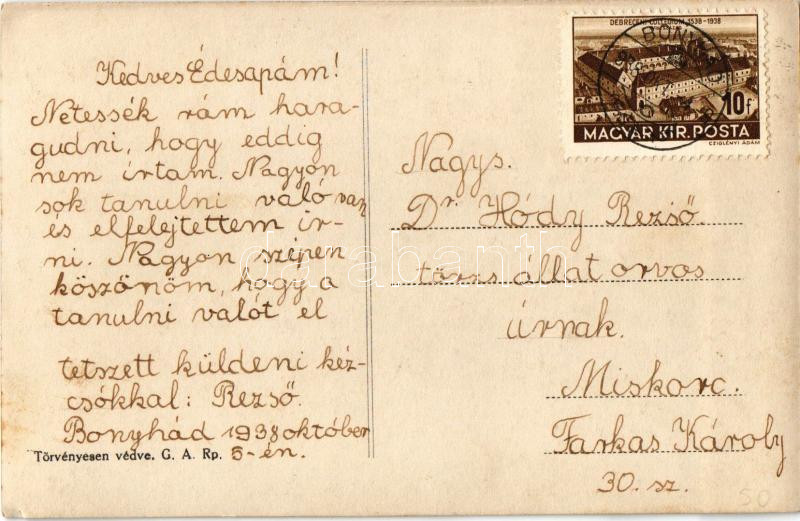 Kedves Édesapám!
Netessék rám hara-
gudni, hogy eddig
nem írtam. Nagyon
sok tanulni való van
és elfelejtettem ír-
ni. Nagyon szépen
köszönöm, hogy a
tanulni valót el
tetszett küldeni kéz-
csókkal: Rezső.
Bonyhád 1938 október
5-én.
Törvényesen védve. G. A. Rp.
DEBRECENI COLLEGIUM 1538-1938
10f
MAGYAR KIR. POSTA
CZIGLÉNYI ÁDÁM
Nagys.
Dr. Hódy Rezső
törzs állat orvos
úrnak.
Miskorc.
Farkas Károly
30. sz.
50
darabanth